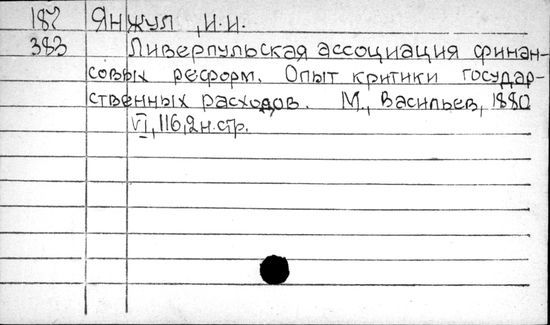 187 Янжул, И.И.
383 Ливерпульская ассоциация финан-
совых реформ. Опыт критики государ-
ственных расходов. М., Васильев, 1880
VI, 116, 2 н. стр.